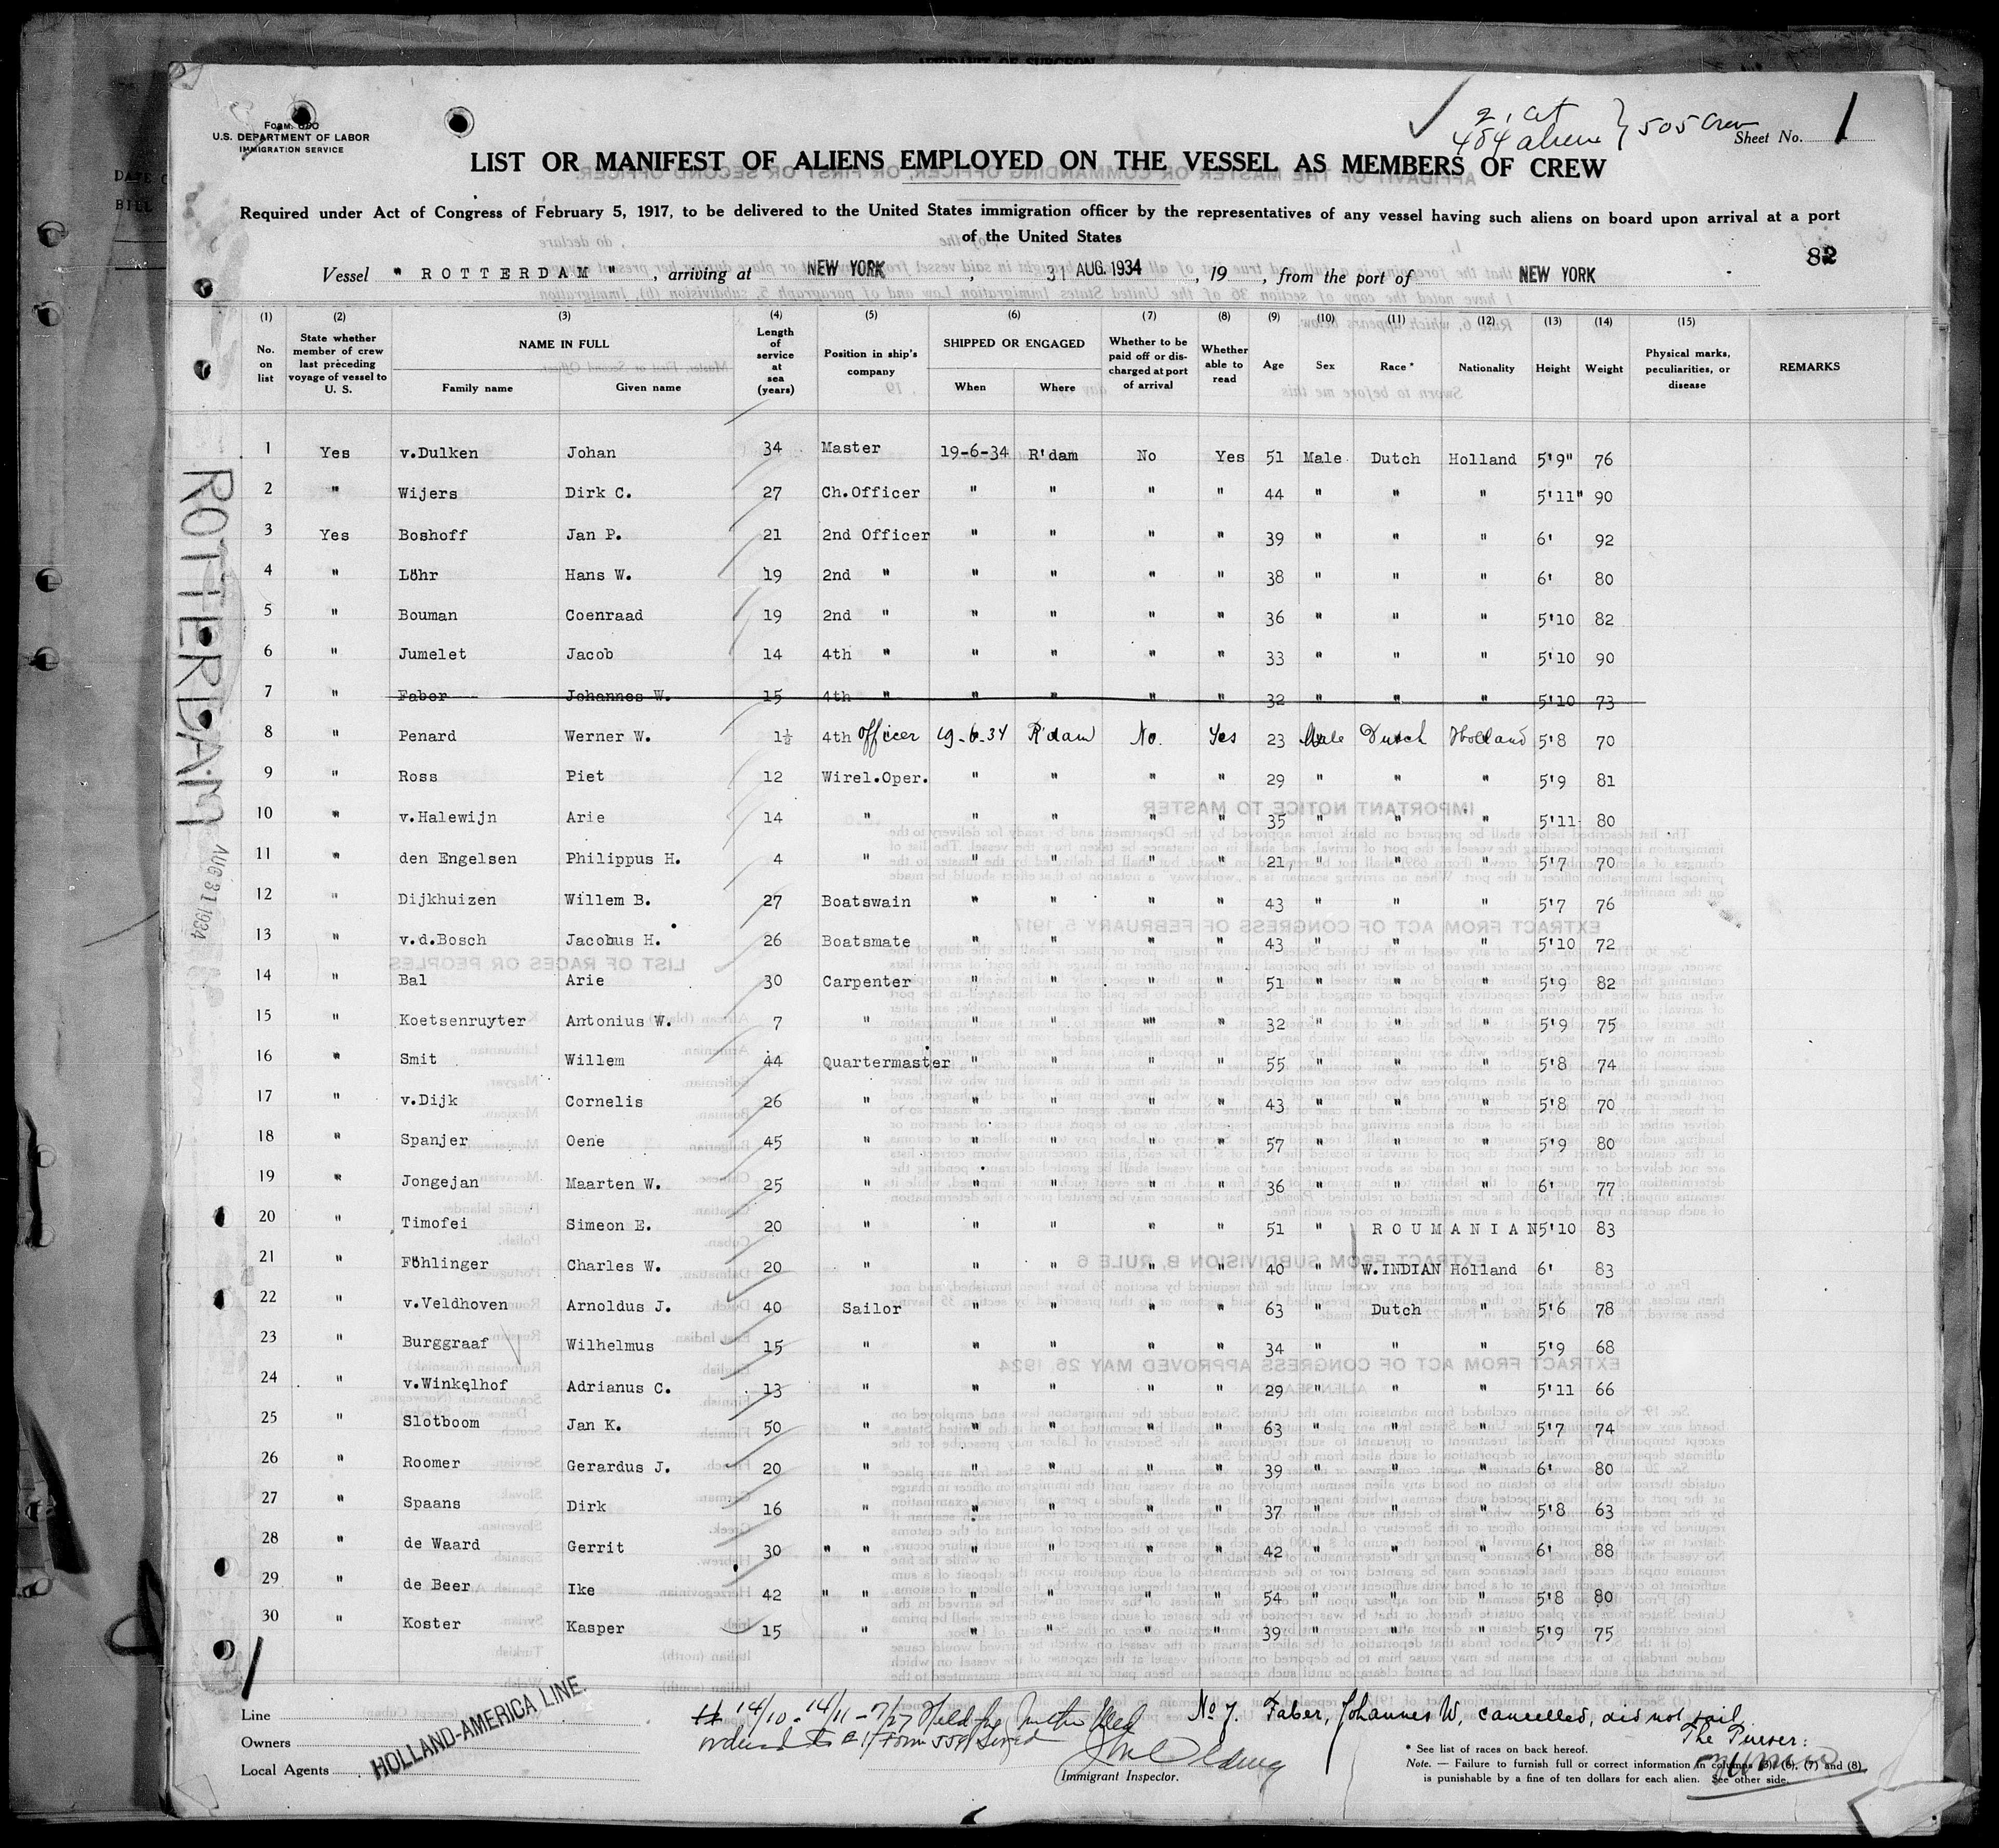 Form 690
U.S. DEPARTMENT OF LABOR
IMMIGRATION SERVICE
505 Crew
Sheet No. 1
LIST OR MANIFEST OF ALIENS EMPLOYED ON THE VESSEL AS MEMBERS OF CREW
Required under Act of Congress of February 5, 1917, to be delivered to the United States immigration officer by the representatives of any vessel having such aliens on board upon arrival at a port
of the United States
82
Vessel " ROTTERDAM ", arriving at NEW YORK, 31 AUG. 1934, 19 , from the port of NEW YORK
(1) (2) (3) (4) (5) (6) (7) (8) (9) (10) (11) (12) (13) (14) (15)
No. on list State whether member of crew last preceding voyage of vessel to U. S. NAME IN FULL Family name Given name Length of service at sea (years) Position in ship's company SHIPPED OR ENGAGED When Where Whether to be paid off or discharged at port of arrival Whether able to read Age Sex Race * Nationality Height Weight Physical marks, peculiarities, or disease REMARKS
1 Yes v.Dulken Johan 34 Master 19-6-34 R'dam No Yes 51 Male Dutch Holland 5'9" 76
2 " Wijers Dirk C. 27 Ch.Officer " " " " 44 " " " 5'11" 90
3 Yes Boshoff Jan P. 21 2nd Officer " " " " 39 " " " 6' 92
4 " Löhr Hans W. 19 2nd " " " " " 38 " " " 6' 80
5 " Bouman Coenraad 19 2nd " " " " " 36 " " " 5'10 82
6 " Jumelet Jacob 14 4th " " " " " 33 " " " 5'10 90
7 " Faber Johannes W. 15 4th " " " " " 32 " " " 5'10 73
8 " Penard Werner W. 1½ 4th officer 19-6-34 R'dam No. Yes 23 Male Dutch Holland 5'8 70
9 " Ross Piet 12 Wirel.Oper. " " " " 29 " " " 5'9 81
10 " v.Halewijn Arie 14 " " " " " 35 " " " 5'11 80
11 " den Engelsen Philippus H. 4 " " " " " 21 " " " 5'7 70
12 " Dijkhuizen Willem B. 27 Boatswain " " " " 43 " " " 5'7 76
13 " v.d.Bosch Jacobus H. 26 Boatsmate " " " " 43 " " " 5'10 72
14 " Bal Arie 30 Carpenter " " " " 51 " " " 5'9 82
15 " Koetsenruyter Antonius W. 7 " " " "" " 32 " " " 5'9 75
16 " Smit Willem 44 Quartermaster " " " " 55 " " " 5'8 74
17 " v.Dijk Cornelis 26 " " " " " 43 " " " 5'8 70
18 " Spanjer Oene 45 " " " " " 57 " " " 5'9 80
19 " Jongejan Maarten W. 25 " " " " " 36 " " " 6' 77
20 " Timofei Simeon E. 20 " " " " " 51 " ROUMANIAN 5'10 83
21 " Föhlinger Charles W. 20 " " " " " 40 " W.INDIAN Holland 6' 83
22 " v.Veldhoven Arnoldus J. 40 Sailor " " " " 63 " Dutch " 5'6 78
23 " Burggraaf Wilhelmus 15 " " " " " 34 " " " 5'9 68
24 " v.Winkelhof Adrianus C. 13 " " " " " 29 " " " 5'11 66
25 " Slotboom Jan K. 50 " " " " " 63 " " " 5'7 74
26 " Roomer Gerardus J. 20 " " " " " 39 " " " 6' 80
27 " Spaans Dirk 16 " " " " " 37 " " " 5'8 63
28 " de Waard Gerrit 30 " " " " " " 42 " " " 6' 88
29 " de Beer Ike 42 " " " " " " 54 " " " 5'8 80
30 " Koster Kasper 15 " " " " " 39 " " " 5'9 75
ROTTERDAM
AUG 31 1934
Line
Owners
Local Agents
HOLLAND-AMERICA LINE.
Immigrant Inspector.
No 7. Faber, Johannes W, cancelled, did not sail.
The Purser:
* See list of races on back hereof.
Note. — Failure to furnish full or correct information in columns (3), (6), (7) and (8)
is punishable by a fine of ten dollars for each alien. See other side.